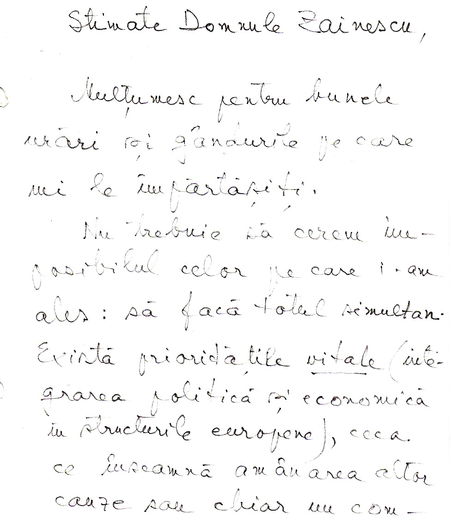 Stimate Domnule Zainescu,
Mulțumesc pentru bunele
urări și gândurile pe care
mi le împărtășiți.
Nu trebuie să cerem im-
posibilul celor pe care i-am
ales: să facă totul simultan.
Există prioritățile vitale (inte-
grarea politică și economică
în structurile europene), ceea
ce înseamnă amânarea altor
cauze sau chiar un com-